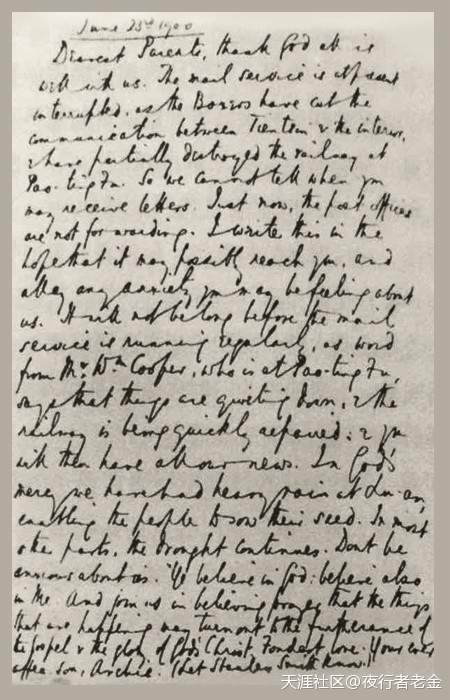 June 23rd 1900
Dearest Parents, thank God all is
well with us. The mail service is at present
interrupted, as the Boxers have cut the
communication between Tientsin & the interior,
& have partially destroyed the railway at
Pao-ting Fu. So we cannot tell when you
may receive letters. Just now, the post offices
are not forwarding. I write this in the
hope that it may possibly reach you, and
allay any anxiety you may be feeling about
us. It will not be long before the mail
service is running regularly, as word
from Mr. Wm Cooper, who is at Pao-ting Fu,
says that things are quieting down, & the
railway is being quickly repaired: & you
will then have all our news. In God's
mercy we have had heavy rain at Lu-an,
enabling the people to sow their seed. In most
other parts, the drought continues. Dont be
anxious about us. 'Ye believe in God: believe also
in Me.' And join us in believing prayer that the things
that are happening may turn out to the furtherance of
the gospel & the glory of God's Christ. Fondest love. Your ever
affec. son, Archie. (Let Stanley Smith know.)
天涯社区@夜行者老金